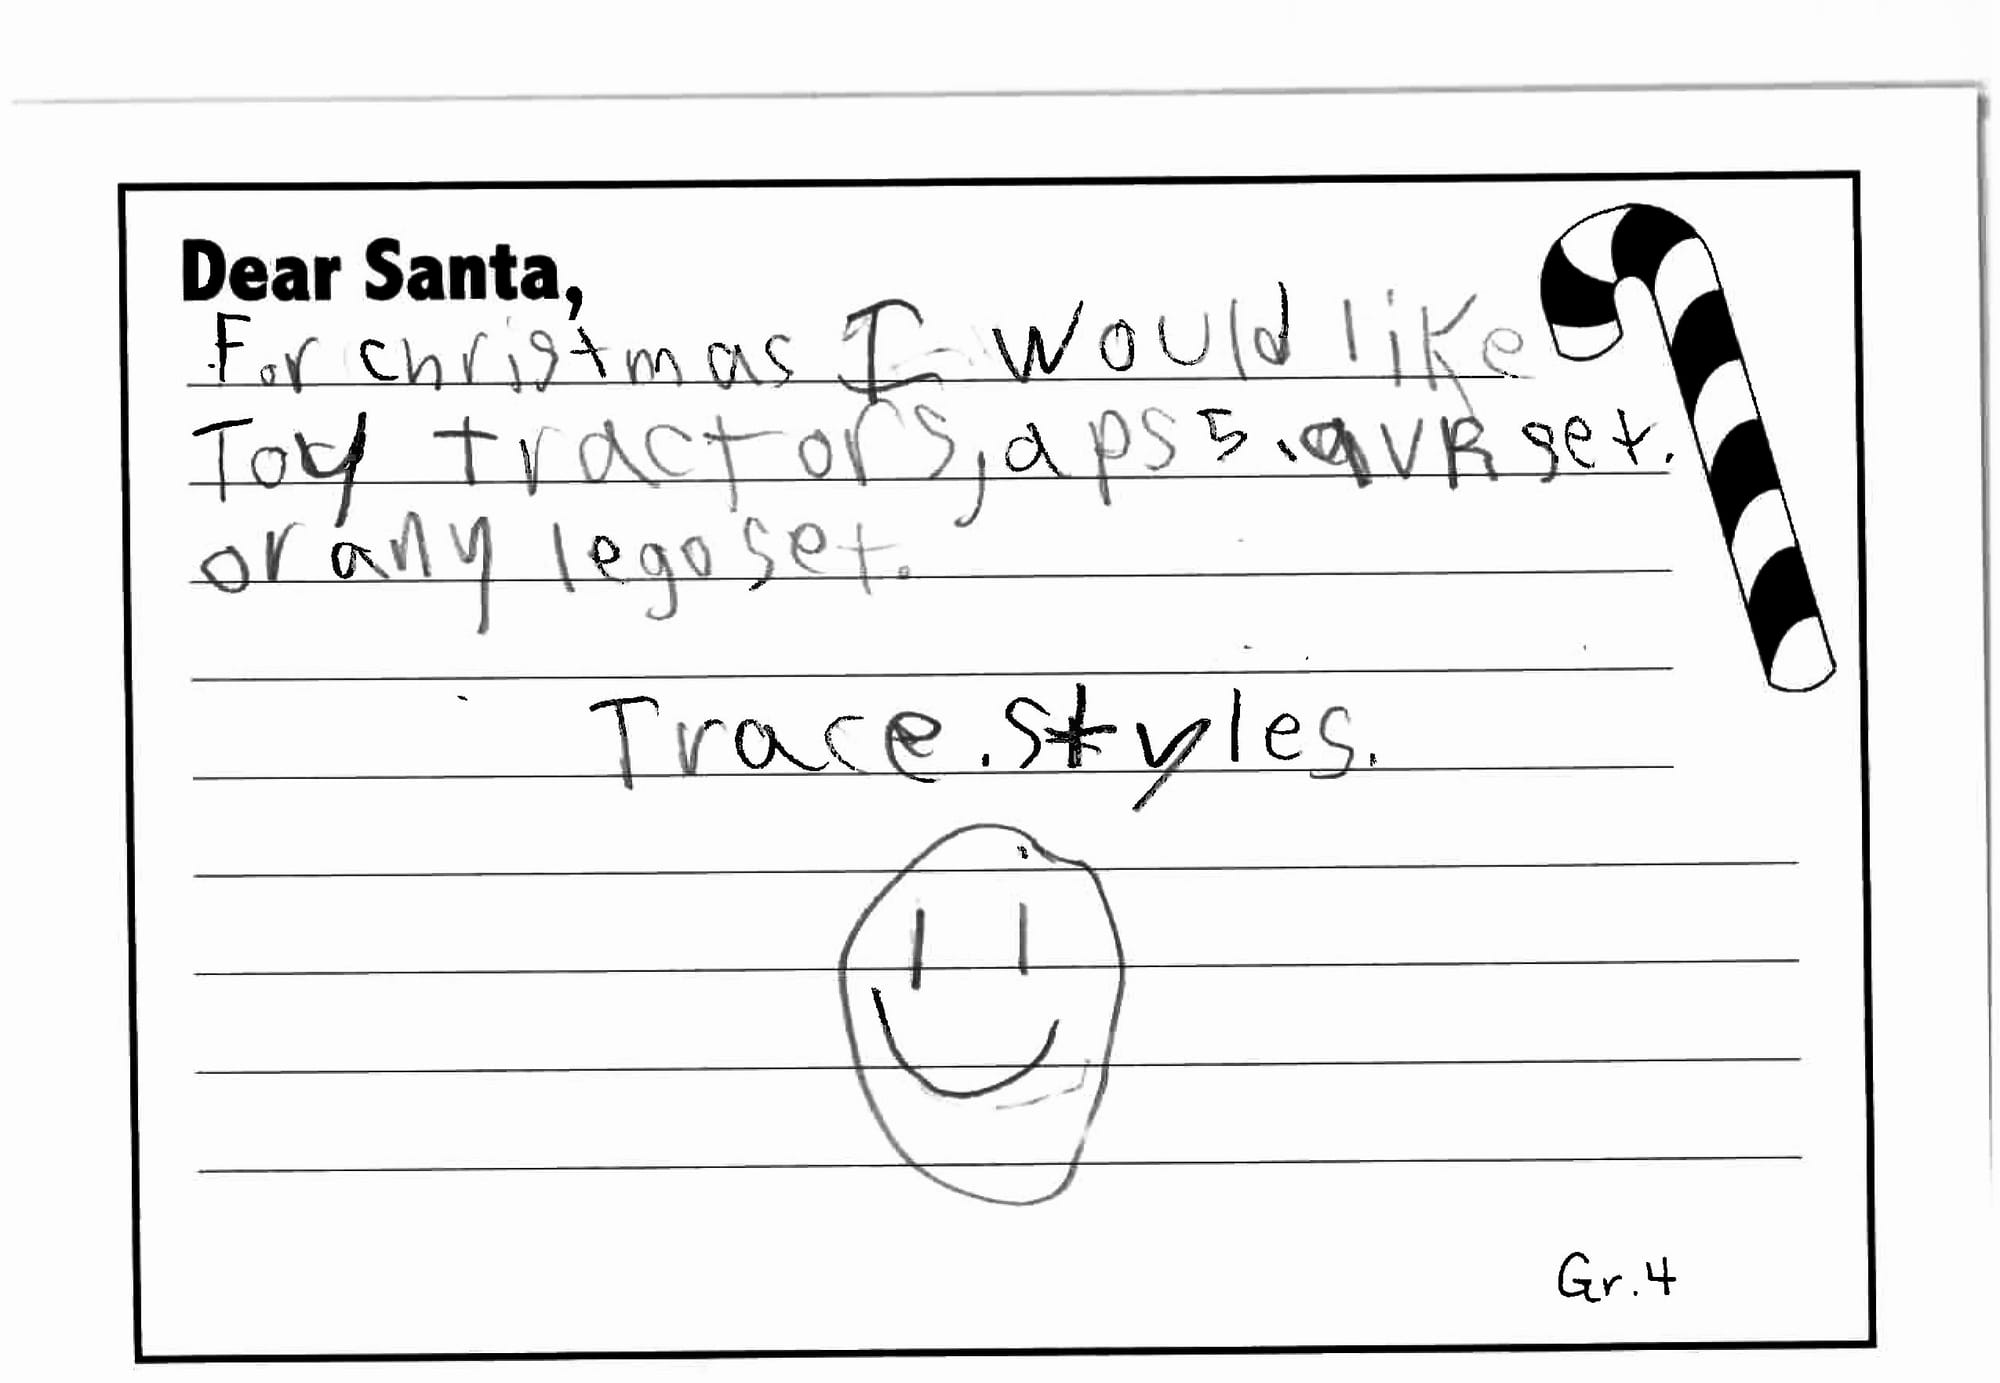 Dear Santa,
For christmas I would like
Toy tractors, a ps5. a VR set.
or any lego set.
Trace. styles.
Gr. 4